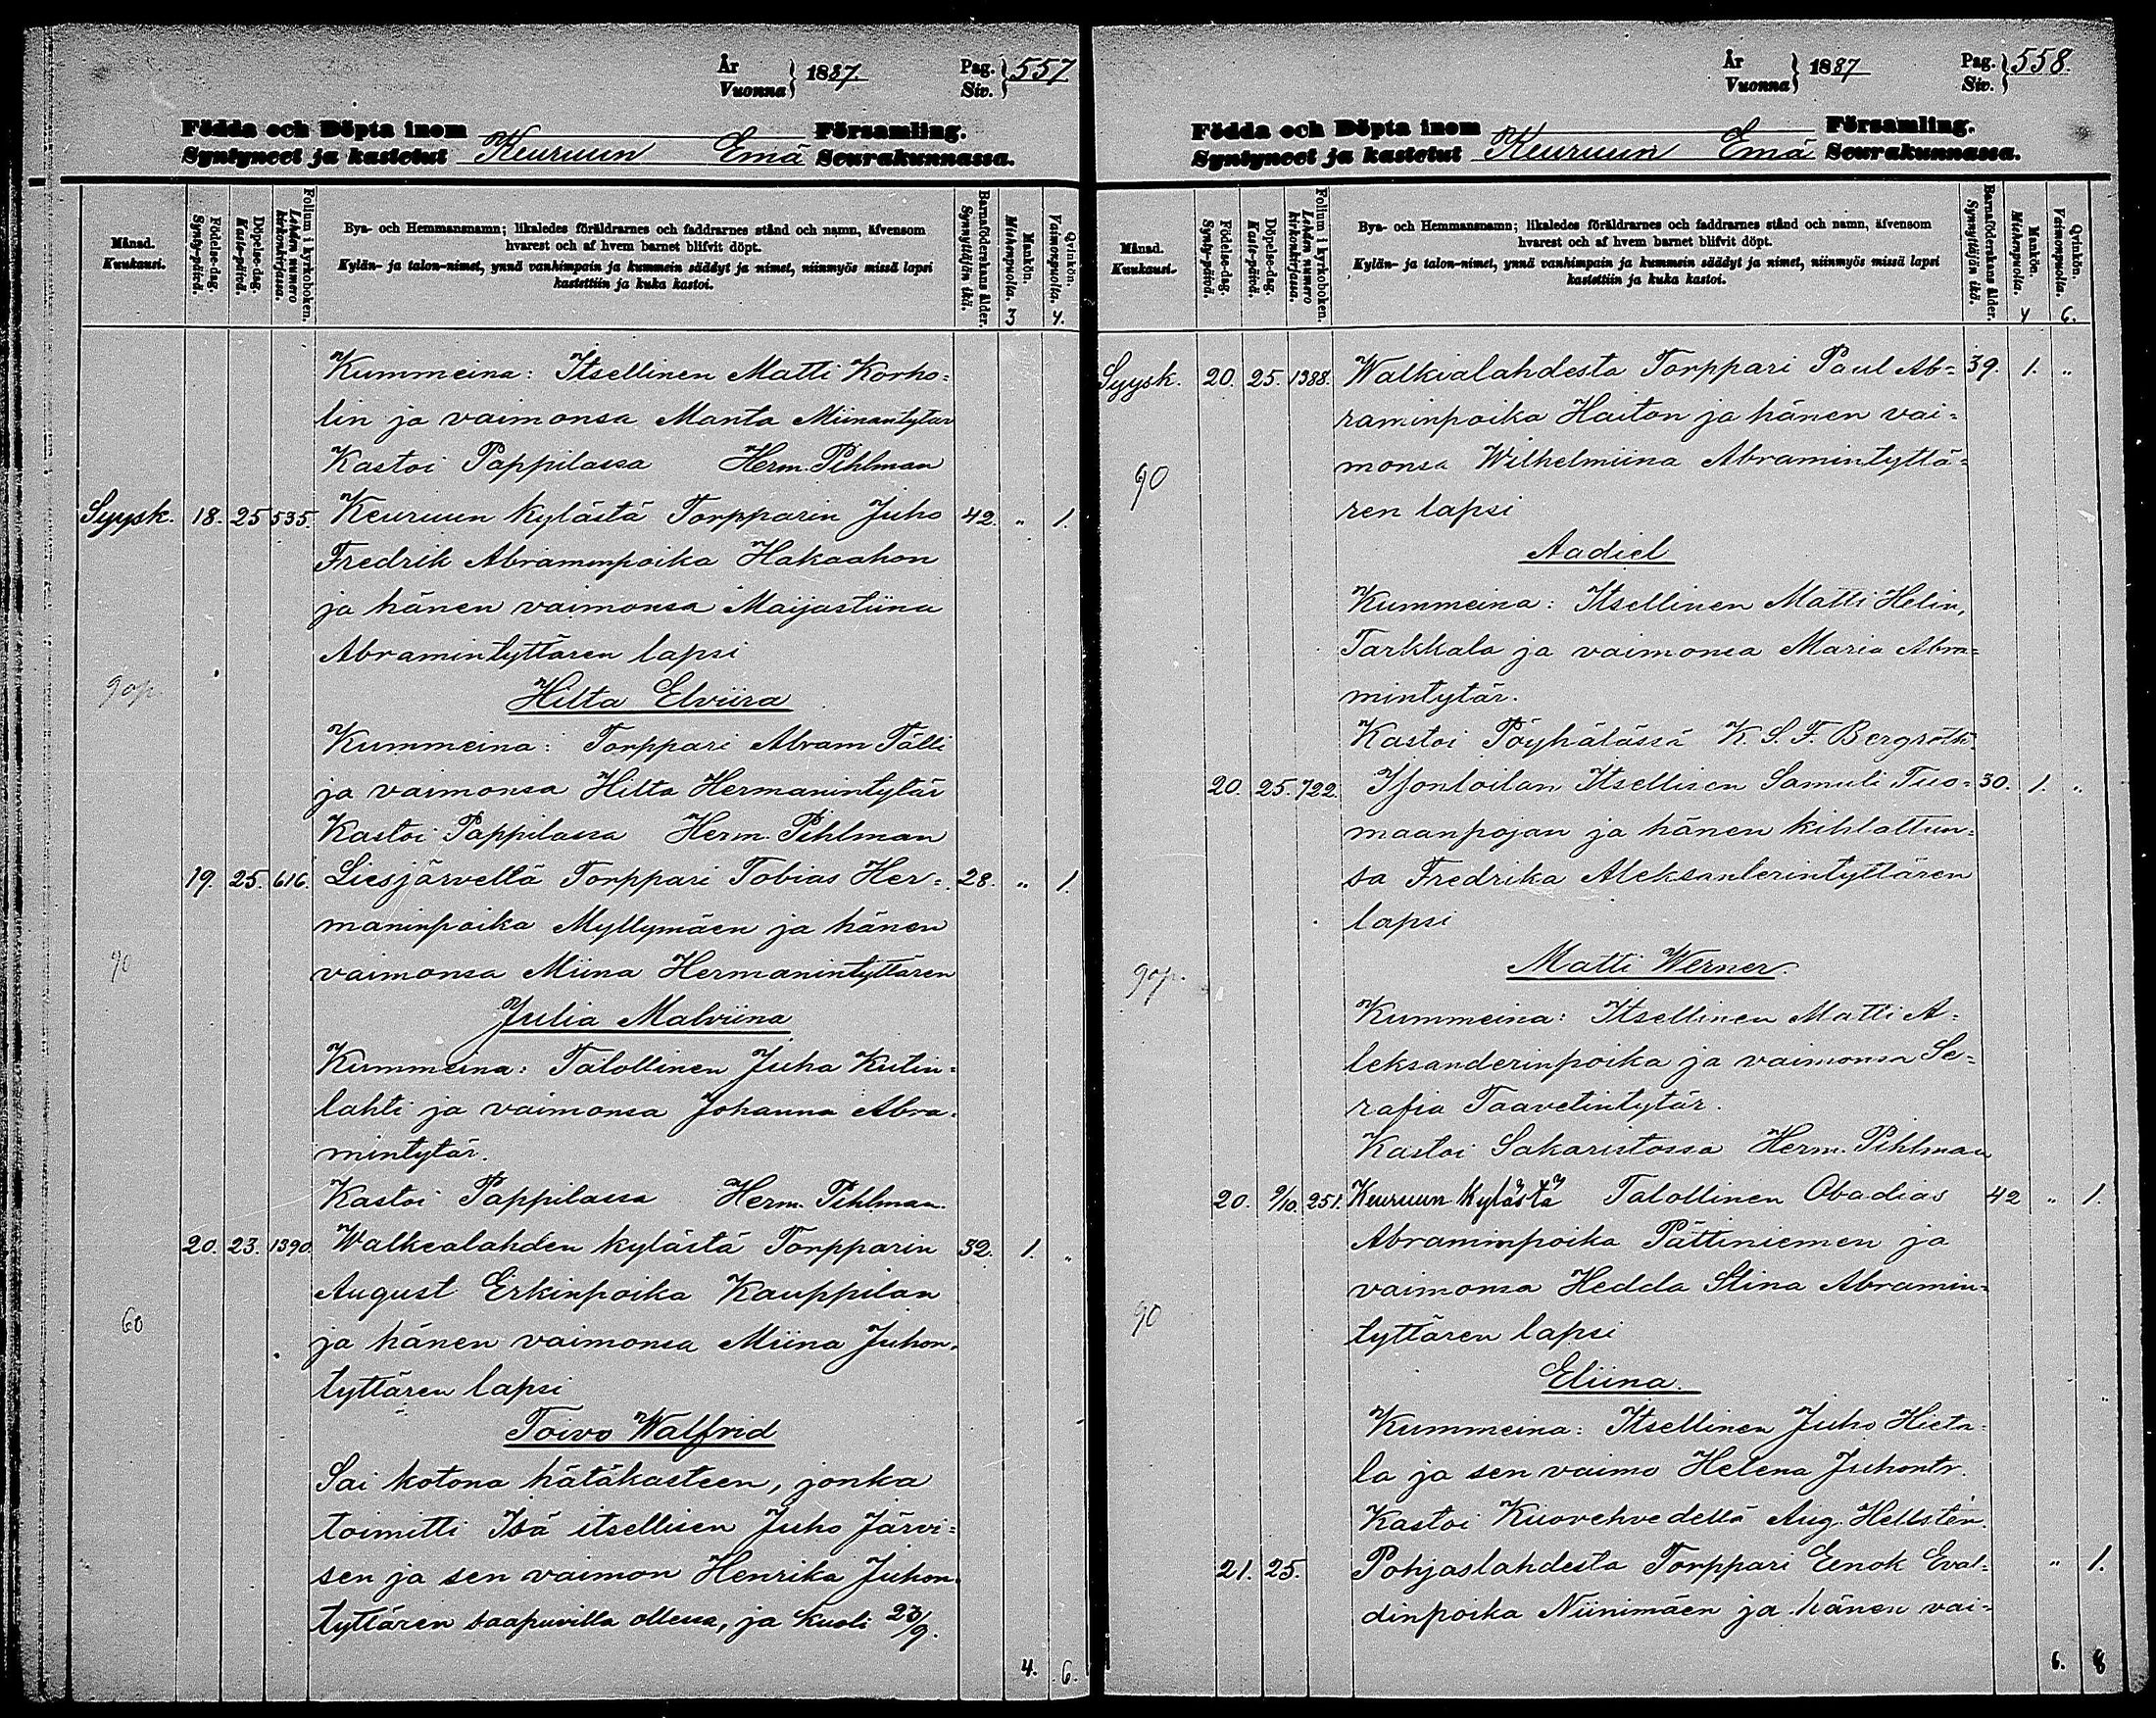 År
Vuonna } 1887. Pag.
Siv. } 557
Födda och Döpta inom Församling.
Syntyneet ja kastetut Keuruun Emä Seurakunnassa.
Månad.
Kuukausi.
Födelse-dag.
Synty-päivä.
Döpelse-dag.
Kaste-päivä.
Folium i kyrkoboken.
Lehden numero
kirkonkirjassa.
Bya- och Hemmansnamn; likaledes föräldrarnes och faddrarnes stånd och namn, äfvensom
hvarest och af hvem barnet blifvit döpt.
Kylän- ja talon-nimet, ynnä vanhimpain ja kummein säädyt ja nimet, niinmyös missä lapsi
kastettiin ja kuka kastoi.
Barnaföderskans ålder.
Synnyttäjän ikä.
Mankön.
Miehenpuolta. 3
Qvinkön.
Vaimonpuolta. 4.
Kummeina: Itsellinen Matti Korho=
lin ja vaimonsa Manta Miinantytar
Kastoi Pappilassa Herm. Pihlman
Syysk. 18. 25 535. Keuruun kylästä Torpparin Juho 42. " 1.
Fredrik Abraminpoika Hakaahon
ja hänen vaimonsa Maijastiina
Abramintyttären lapsi
gop.
Hilta Elviira
Kummeina: Torppari Abram Tälli
ja vaimonsa Hilta Hermanintytär
Kastoi Pappilassa Herm. Pihlman
19. 25. 616. Liesjärveltä Torppari Tobias Her= 28. " 1.
maninpoika Myllymäen ja hänen
90 vaimonsa Miina Hermanintyttären
Julia Malviina
Kummeina: Talollinen Juha Kutin=
lahti ja vaimonsa Johanna Abra=
mintytär.
Kastoi Pappilassa Herm. Pihlman.
20. 23. 1390. Walkealahden kylästä Torpparin 32. 1. "
August Erkinpoika Kauppilan
60 ja hänen vaimonsa Miina Juhon=
tyttären lapsi
Toivo Walfrid
Sai kotona hätäkasteen, jonka
toimitti Isä itsellisen Juho Järvi=
sen ja sen vaimon Henrika Juhon=
tyttären saapuvilla ollessa, ja kuoli 23/9.
4. 6.
År
Vuonna } 1887 Pag.
Siv. } 558.
Födda och Döpta inom Församling.
Syntyneet ja kastetut Keuruun Emä Seurakunnassa.
Månad.
Kuukausi.
Födelse-dag.
Synty-päivä.
Döpelse-dag.
Kaste-päivä.
Folium i kyrkoboken.
Lehden numero
kirkonkirjassa.
Bya- och Hemmansnamn; likaledes föräldrarnes och faddrarnes stånd och namn, äfvensom
hvarest och af hvem barnet blifvit döpt.
Kylän- ja talon-nimet, ynnä vanhimpain ja kummein säädyt ja nimet, niinmyös missä lapsi
kastettiin ja kuka kastoi.
Barnaföderskans ålder.
Synnyttäjän ikä.
Mankön.
Miehenpuolta. 4
Qvinkön.
Vaimonpuolta. 6.
Syysk. 20. 25. 1388. Walkialahdesta Torppari Paul Ab= 39. 1. "
raminpoika Haiton ja hänen vai=
90 monsa Wilhelmiina Abramintyttä=
ren lapsi
Aadiel
Kummeina: Itsellinen Matti Helin,
Tarkkala ja vaimonsa Maria Abra=
mintytär.
Kastoi Pöyhälässä K. S. F. Bergroth.
20. 25. 722. Itsellisen Samuli Tuo= 30. 1. "
maanpojan ja hänen kihlattun=
sa Fredrika Aleksanterintyttären
lapsi
gop. Matti Werner.
Kummeina: Itsellinen Matti A=
leksanderinpoika ja vaimonsa Se=
rafia Taavetintytär.
Kastoi Sakaristossa Herm. Pihlman
20. 9/10. 251. Keuruun kylästä Talollinen Obadias 42 " 1.
Abraminpoika Pättiniemen ja
vaimonsa Hedda Stina Abramin=
90 tyttären lapsi
Eliina.
Kummeina: Itsellinen Juho Hieta=
la ja sen vaimo Helena Juhontr.
Kastoi Kuorehvedellä Aug. Hellstén.
21. 25. Pohjaslahdesta Torppari Eenok Eval= " 1.
dinpoika Niinimäen ja hänen vai=
6. 8